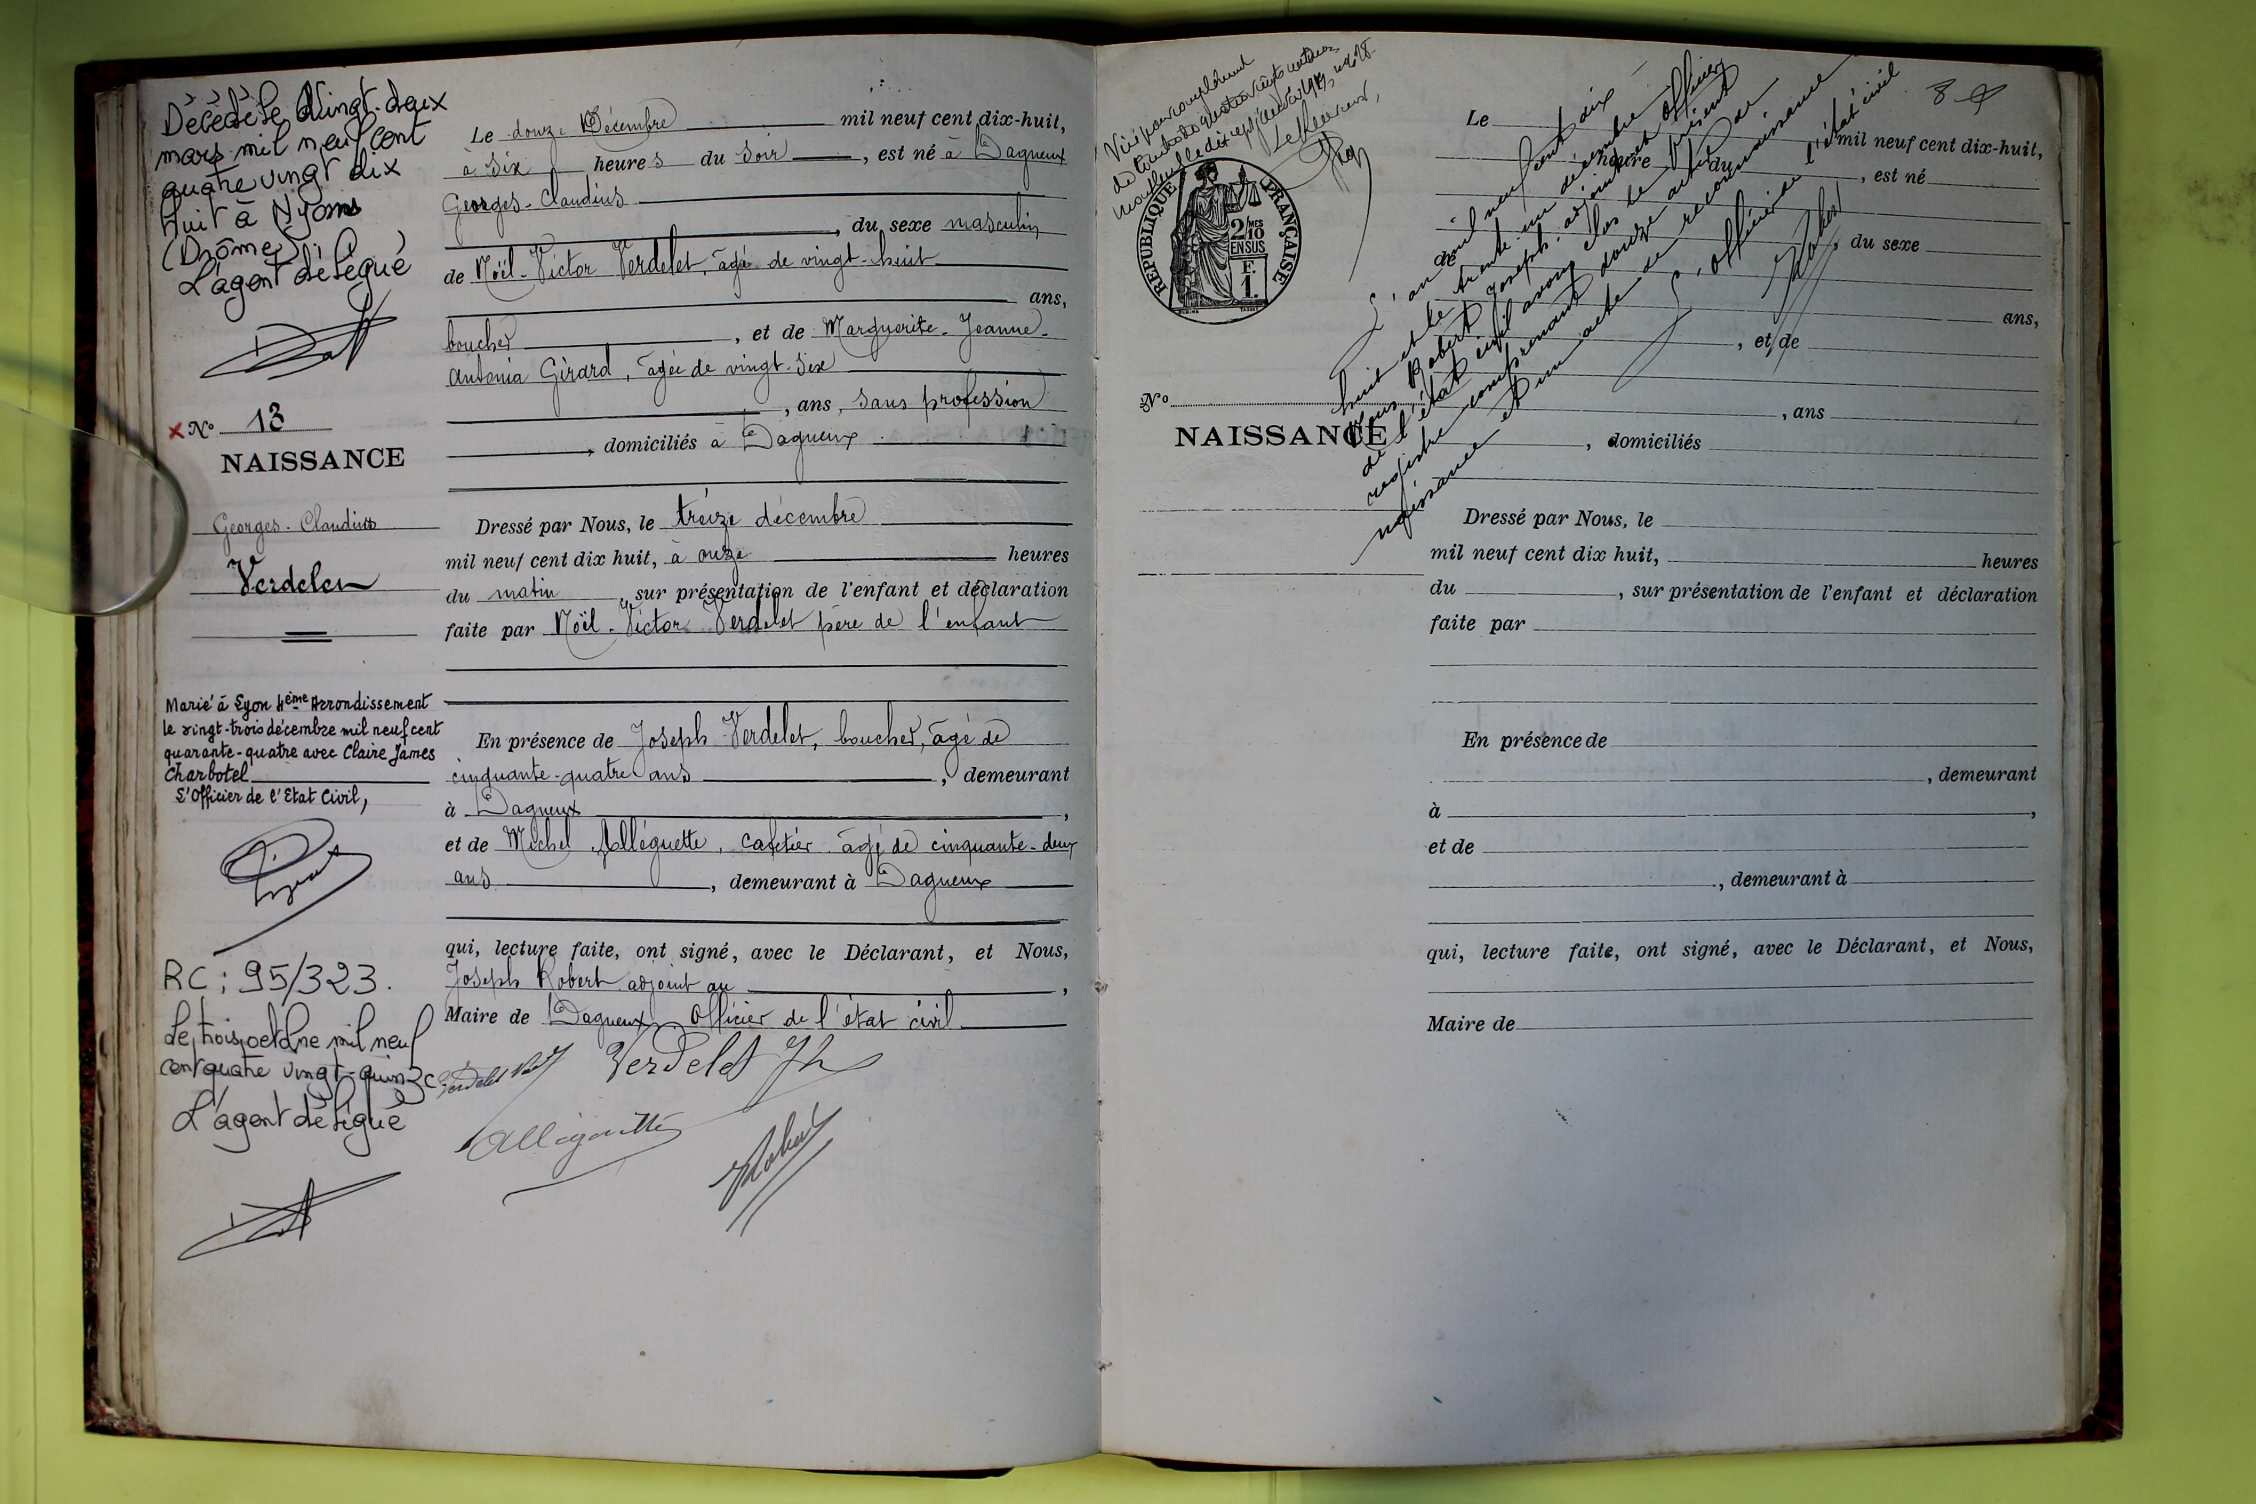 Décédé le vingt-deux
mars mil neuf cent
quatre vingt dix
huit à Nyons
(Drôme)
L'agent délégué
N° 13
NAISSANCE
Georges-Claudius
Verdelet
Marié à Lyon 4ème Arrondissement
le vingt-trois décembre mil neuf cent
quarante-quatre avec Claire James
Charbotel
L'Officier de l'Etat Civil,
RC: 95/323.
Le trois octobre mil neuf
cent quatre vingt-quinze
L'agent délégué
Le douze Décembre mil neuf cent dix-huit,
à six heures du soir, est né à Dagneux
Georges-Claudius
, du sexe masculin
de Noël-Victor Verdelet, âgé de vingt-huit
ans,
boucher, et de Marguerite-Jeanne-
Antonia Girard, âgée de vingt-six
, ans, sans profession
, domiciliés à Dagneux
Dressé par Nous, le treize décembre
mil neuf cent dix huit, à onze heures
du matin, sur présentation de l'enfant et déclaration
faite par Noël-Victor Verdelet père de l'enfant
En présence de Joseph Verdelet, boucher, âgé de
cinquante-quatre ans, demeurant
à Dagneux,
et de Michel Alléguette, cafetier âgé de cinquante-deux
ans, demeurant à Dagneux
qui, lecture faite, ont signé, avec le Déclarant, et Nous,
Joseph Robert adjoint au,
Maire de Dagneux Officier de l'état civil
Verdelet Jh
Robert
Visé pour complément
REPUBLIQUE FRANÇAISE
2/MES
10
EN SUS
F.
1.
L'an mil neuf cent dix
huit et le trente un décembre
Nous Robert Joseph, adjoint et officier
de l'état civil avons clos le présent
registre comprenant douze actes de
naissance et un acte de reconnaissance
L'officier de l'état civil
Robert
8
N°
NAISSANCE
Le mil neuf cent dix-huit,
heure du, est né
, du sexe
de
ans,
, et de
, ans
, domiciliés
Dressé par Nous, le
mil neuf cent dix huit, heures
du, sur présentation de l'enfant et déclaration
faite par
En présence de
, demeurant
à,
et de
, demeurant à
qui, lecture faite, ont signé, avec le Déclarant, et Nous,
Maire de